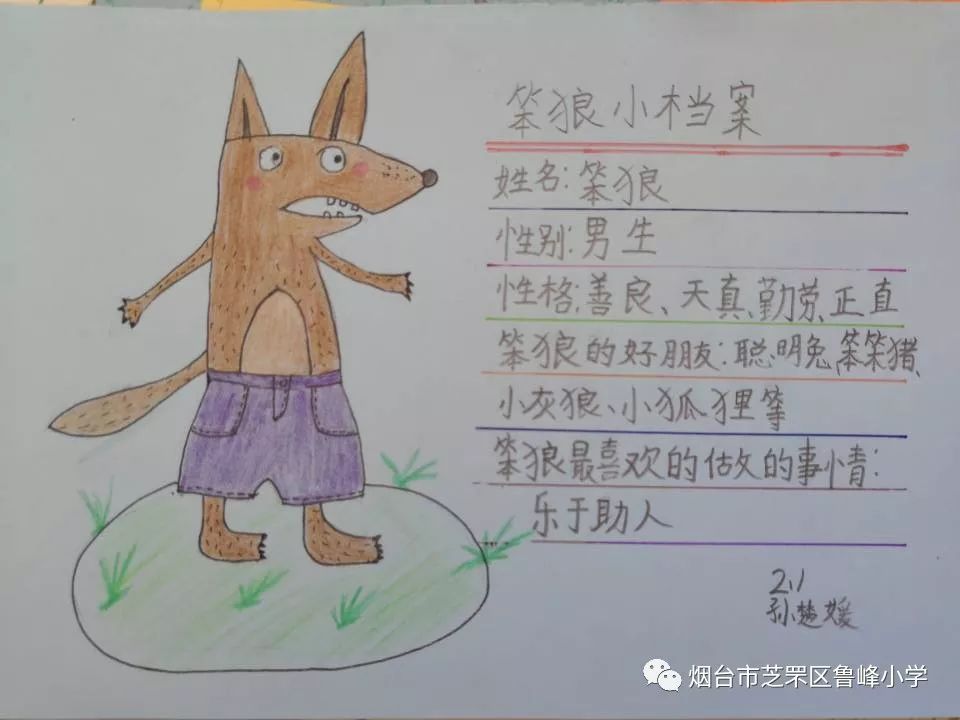 笨狼小档案
姓名:笨狼
性别:男生
性格:善良、天真、勤劳、正直
笨狼的好朋友:聪明兔、笨笨猪、
小灰狼、小狐狸等
笨狼最喜欢的做的事情:
乐于助人
2.1
孙楚媛
烟台市芝罘区鲁峰小学